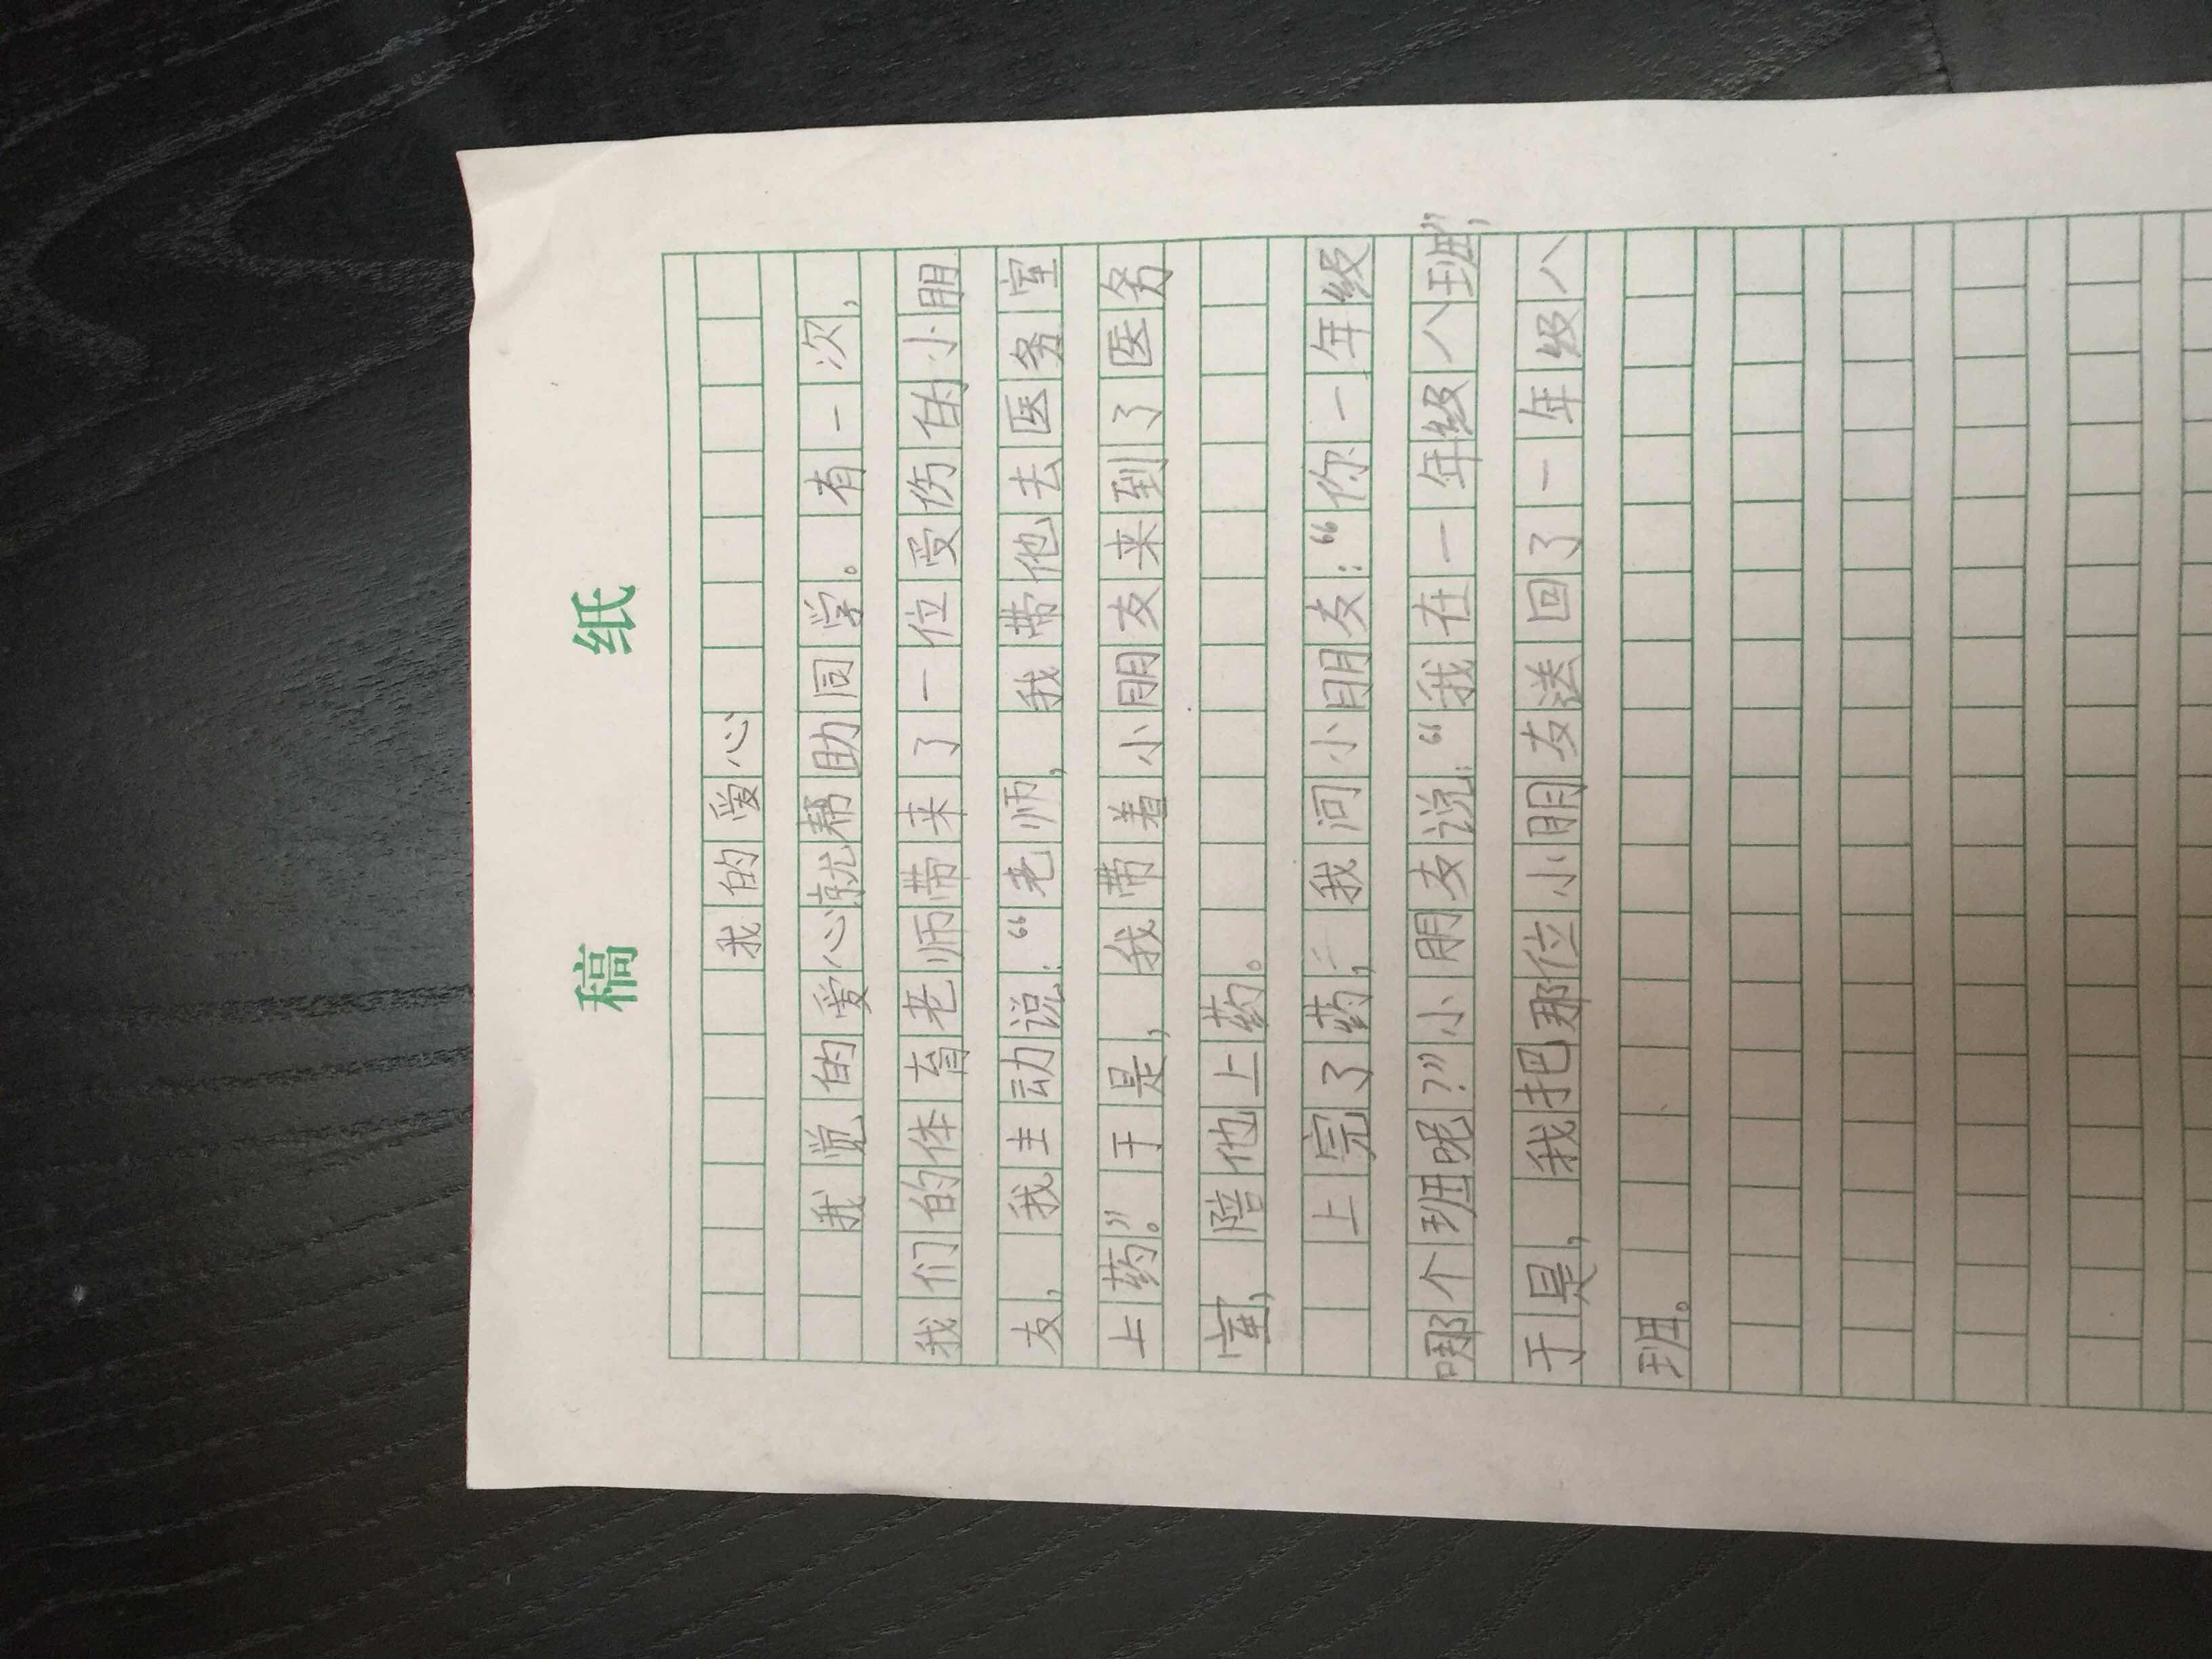 稿 纸
我的爱心
我觉的爱心就帮助同学。有一次,
我们的体育老师带来了一位受伤的小朋
友,我主动说:“老师,我带他去医务室
上药。”于是,我带着小朋友来到了医务
室,陪他上药。
上完了药,我问小朋友:“你一年级
哪个班呢?”小朋友说:“我在一年级八班”,
于是,我把那位小朋友送回了一年级八
班。